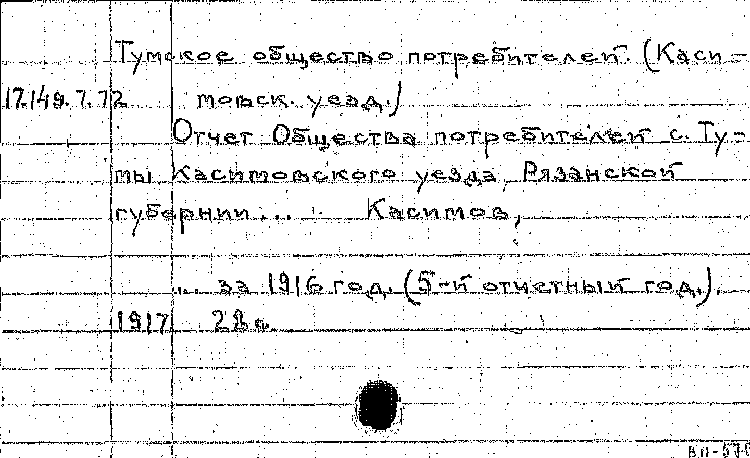 Тумское общество потребителей. (Каси-
17.149.7.72 мовск. уезд.)
Отчет Общества потребителей с. Ту-
мы Касимовского уезда, Рязанской
губернии... Касимов,
... за 1916 год. (5-й отчетный год.).
1917 22 с.